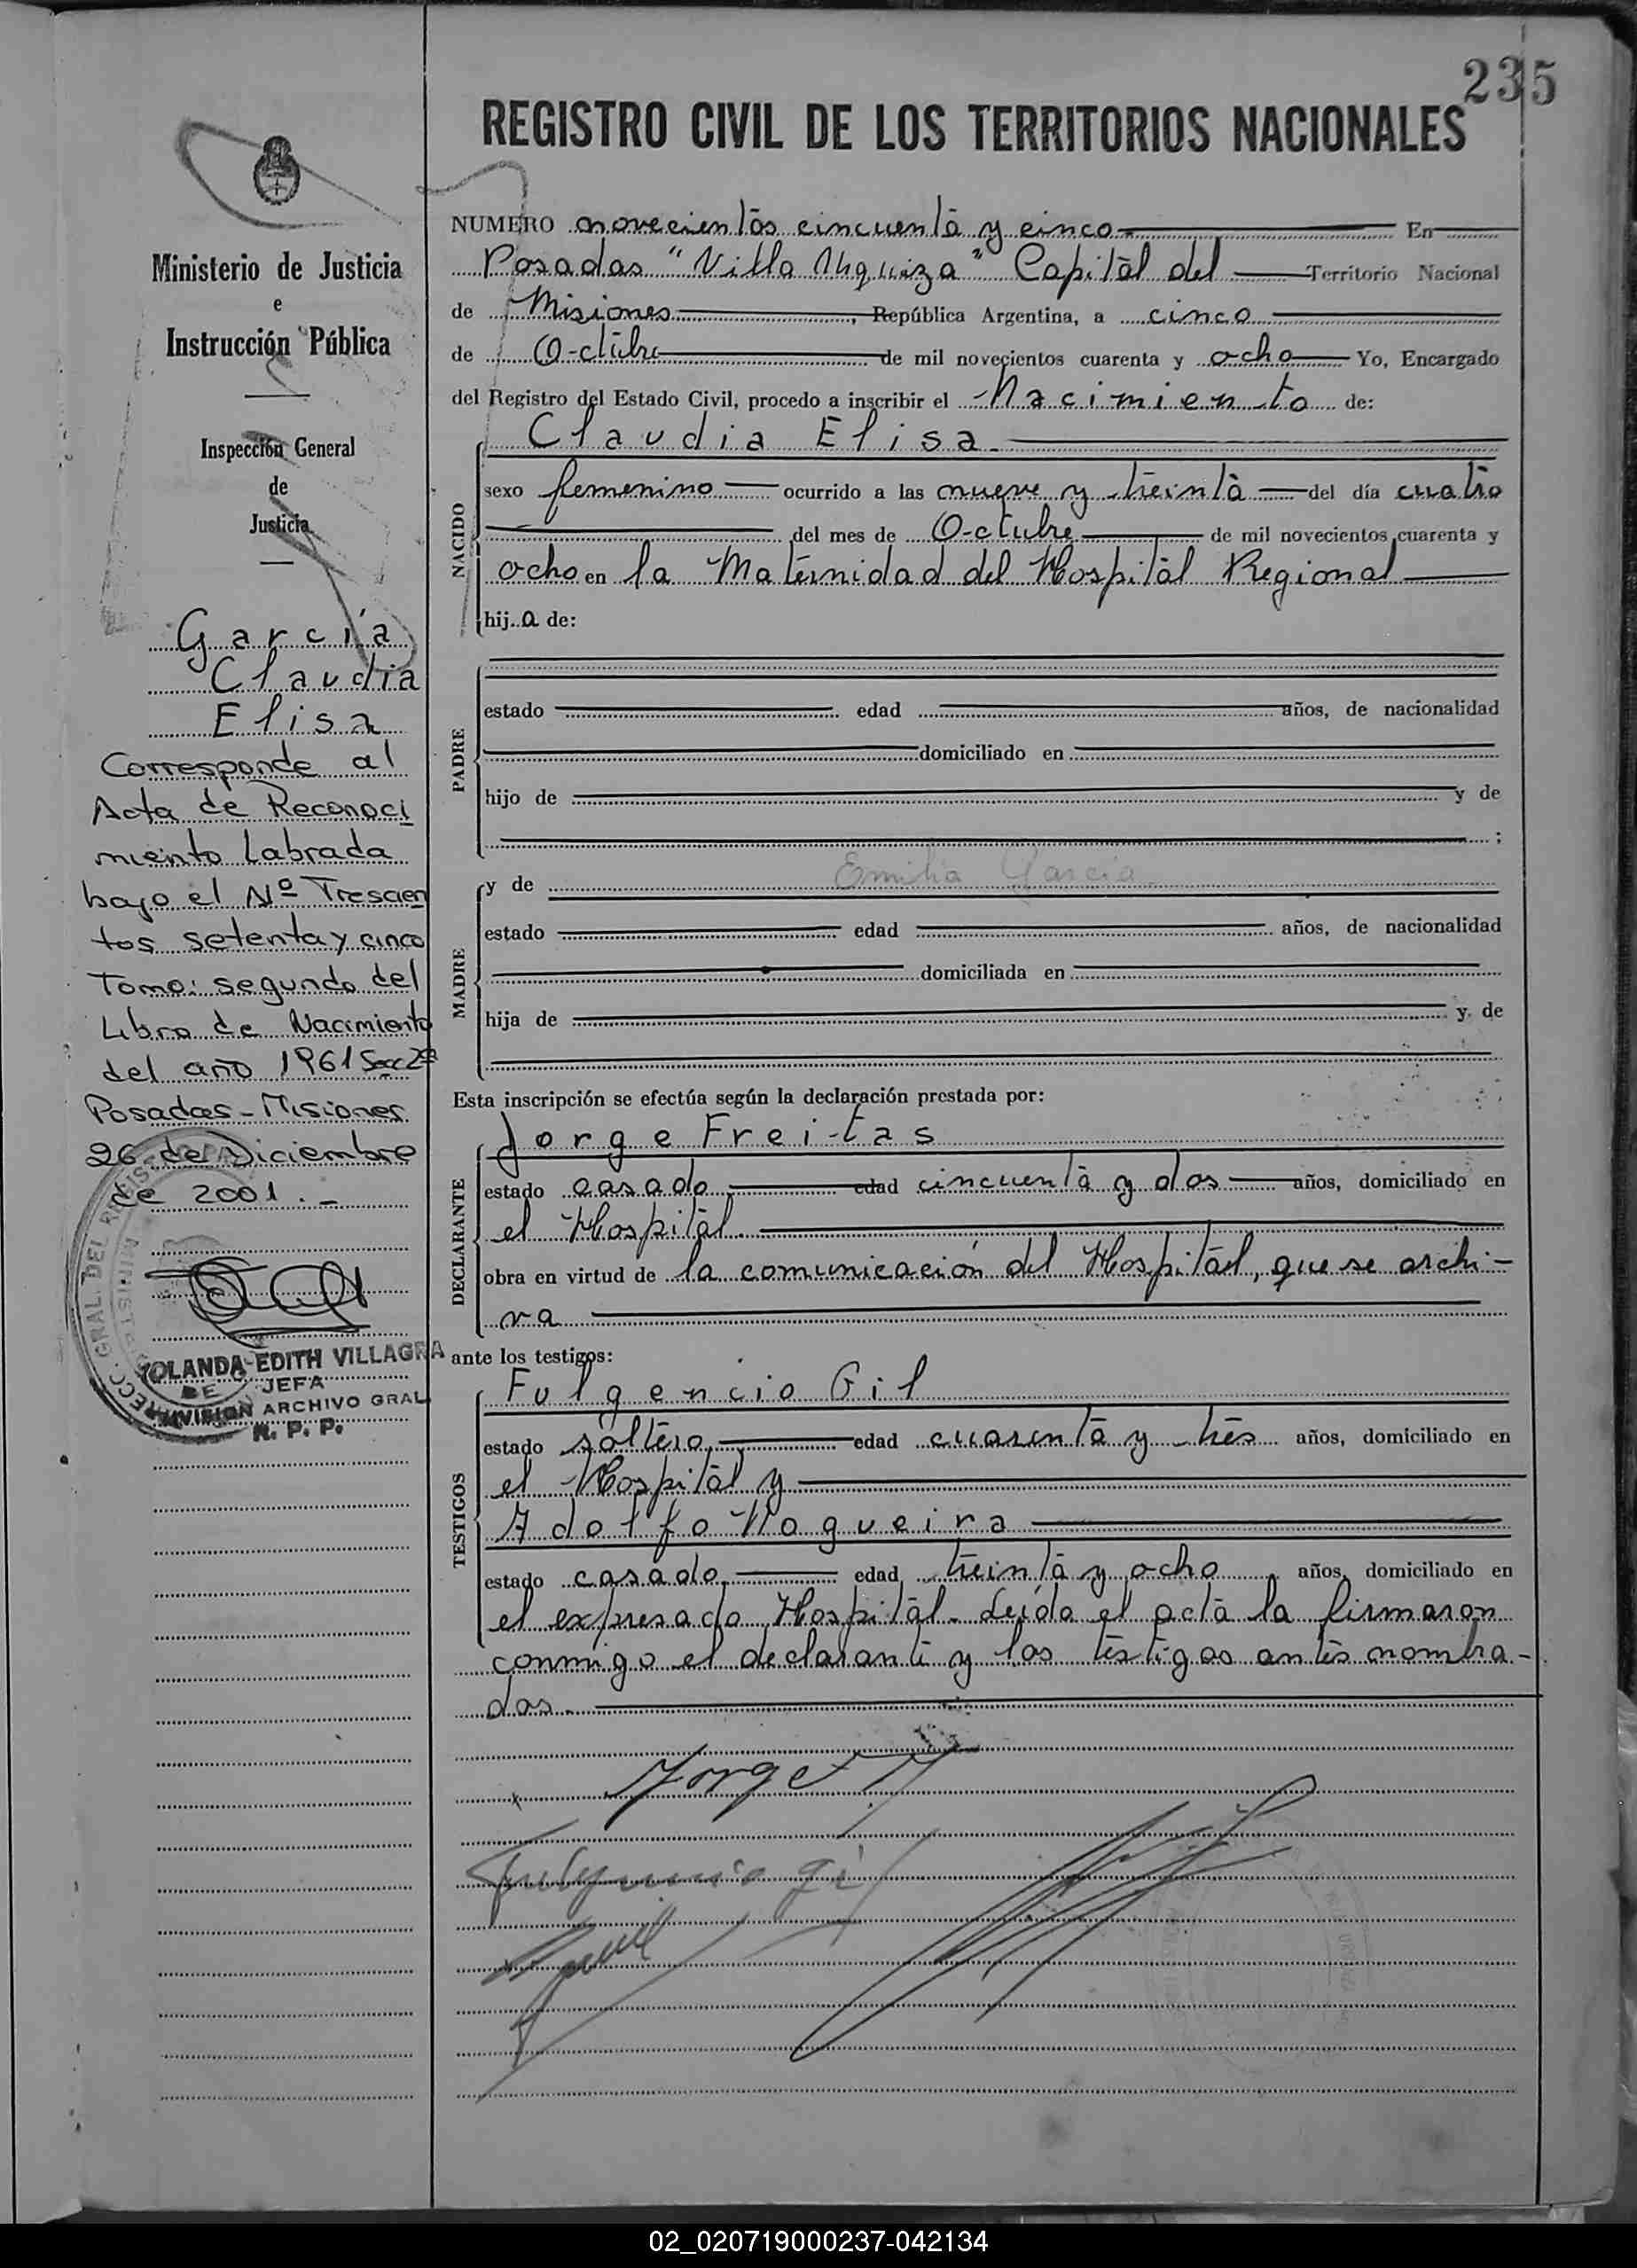 235
REGISTRO CIVIL DE LOS TERRITORIOS NACIONALES
Ministerio de Justicia
e
Instrucción Pública
Inspección General
de
Justicia
García
Claudia
Elisa
Corresponde al
Acta de Reconoci
miento Labrada
bajo el Nº Trescien
tos setenta y cinco
Tomo: segundo del
Libro de Nacimiento
del año 1961 Secc 2ª
Posadas - Misiones
26 de Diciembre
de 2001.-
YOLANDA EDITH VILLAGRA
JEFA
DIVISION ARCHIVO GRAL
R. P. P.
NUMERO novecientos cincuenta y cinco.- En
Posadas "Villa Urquiza" Capital del Territorio Nacional
de Misiones, República Argentina, a cinco
de Octubre de mil novecientos cuarenta y ocho Yo, Encargado
del Registro del Estado Civil, procedo a inscribir el Nacimiento de:
Claudia Elisa.
NACIDO
sexo femenino ocurrido a las nueve y treinta del día cuatro
del mes de Octubre de mil novecientos cuarenta y
ocho en la Maternidad del Hospital Regional
hija de:
PADRE
estado edad años, de nacionalidad
domiciliado en
hijo de y de
;
MADRE
y de Emilia Garcia
estado edad años, de nacionalidad
domiciliada en
hija de y de
Esta inscripción se efectúa según la declaración prestada por:
DECLARANTE
Jorge Freitas
estado casado edad cincuenta y dos años, domiciliado en
el Hospital.
obra en virtud de la comunicación del Hospital, que se archi-
va
ante los testigos:
TESTIGOS
Fulgencio Gil
estado soltero, edad cuarenta y tres años, domiciliado en
el Hospital y
Adolfo Nogueira
estado casado, edad treinta y ocho años, domiciliado en
el expresado Hospital. Leída el acta la firmaron
conmigo el declarante y los testigos antes nombra-
dos.
Jorge
Fulgencio Gil
02_020719000237-042134